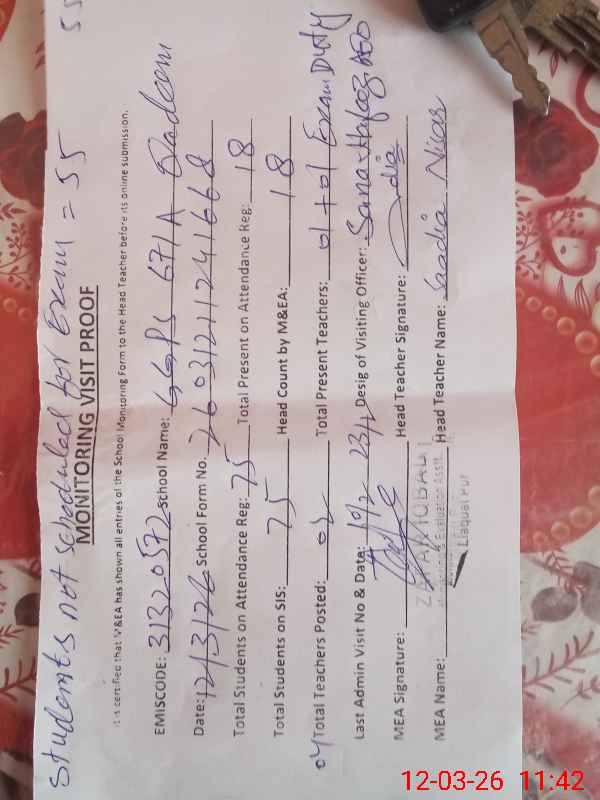 Students not scheduled for Exam = 55
55
MONITORING VISIT PROOF
It is certified that M&EA has shown all entries of the School Monitoring Form to the Head Teacher before its online submission.
EMISCODE: 31320572 School Name: GGPS 671A Qadeem
Date: 12/3/26 School Form No. 26031211241668
Total Students on Attendance Reg: 75 Total Present on Attendance Reg: 18
Total Students on SIS: 75 Head Count by M&EA: 18
04 Total Teachers Posted: 02 Total Present Teachers: 01 + 01 Exam Duty
Last Admin Visit No & Date: 23/2 Desig of Visiting Officer: Sana Hafeez AEO
MEA Signature: Head Teacher Signature:
MEA Name: Head Teacher Name: Saadia Niar
ZAFAR IQBAL
Monitoring & Evaluation Asstt.
Liaquat Pur
12-03-26 11:42